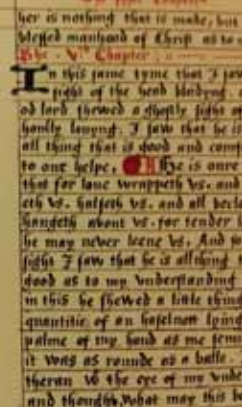 her is nothing that is made, but
blessed manhood of Christ as to
The .Vth. Chapter.
In this same tyme that I saw
sight of the head bleedyng.
od lord shewed a ghostly sight of
homly louyng. I saw that he is
all thing that is good and comf
to our helpe, He is oure
that for loue wrappeth vs. and
eth vs. halseth vs. and all becle
hangeth about vs. for tender l
he may never leeue vs, And so
sight I saw that he is all thing t
good as to my vnderstanding
in this he shewed a little thing
quantitie of an haselnott lying
palme of my hand as me seme
it was as rounde as a balle.
theran with the eye of my vnde
and thought, What may this b